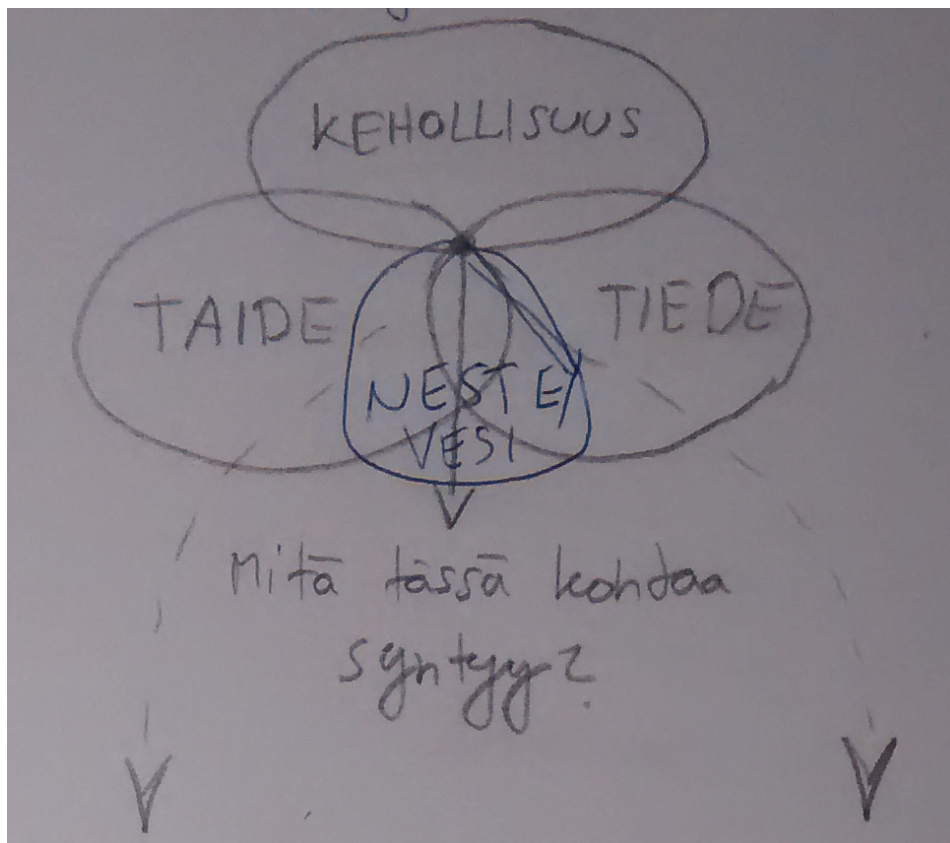 KEHOLLISUUS
TAIDE
TIEDE
NESTE/
VESI
Mitä tässä kohtaa
syntyy?